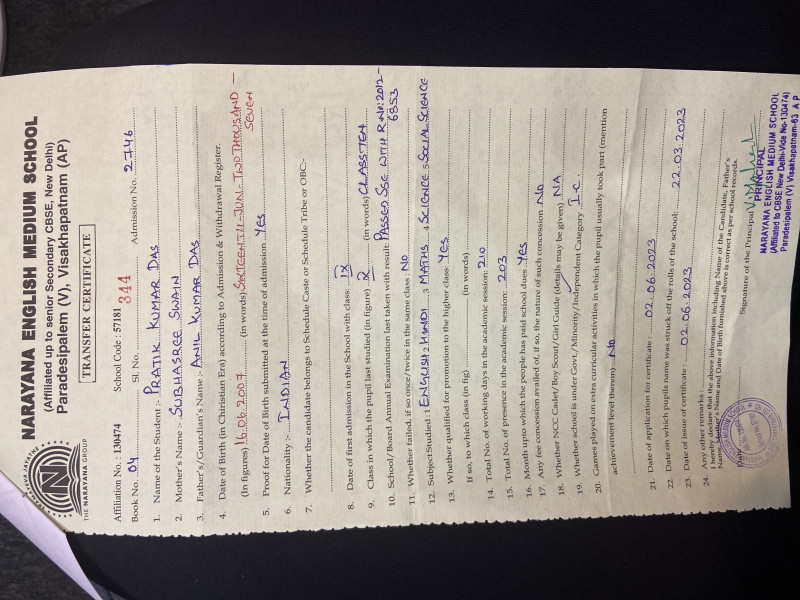 NARAYANA ENGLISH MEDIUM SCHOOL
(Affiliated up to senior Secondary CBSE, New Delhi)
Paradesipalem (V), Visakhapatnam (AP)
THE NARAYANA GROUP
TRANSFER CERTIFICATE
Affiliation No. : 130474 School Code : 57181
Book No. 04 Sl. No. 344 Admission No. 2746
1. Name of the Student :- PRATIK KUMAR DAS
2. Mother's Name :- SUBHASREE SWAIN
3. Father's/Guardian's Name :- ANIL KUMAR DAS
4. Date of Birth (in Christian Era) according to Admission & Withdrawal Register.
(In figures) 16.06.2007 (in words) SIXTEENTH-JUN-TWO THOUSAND -
SEVEN
5. Proof for Date of Birth submitted at the time of admission Yes
6. Nationality :- INDIAN
7. Whether the candidate belongs to Schedule Caste or Schedule Tribe or OBC:-
8. Date of first admission in the School with class: IX
9. Class in which the pupil last studied (in figure) X (in words) CLASS TEN
10. School/Board Annual Examination last taken with result: PASSED SSE WITH R.No:2012-
6853
11. Whether failed, if so once/twice in the same class : NO
12. Subject Studied : 1 ENGLISH 2 HINDI 3 MATHS 4 SCIENCE 5 SOCIAL SCIENCE
13. Whether qualified for promotion to the higher class: Yes
If so, to which class (in fig) (in words)
14. Total No. of working days in the academic session: 210
15. Total No. of presence in the academic session: 203
16. Month upto which the people has paid school dues Yes
17. Any fee concession availed of, if so, the nature of such concession NO
18. Whether NCC Cadet/Boy Scout/Girl Guide (details may be given) NA
19. Whether school is under Govt./Minority/Independent Category I.C.
20. Games played on extra curricular activities in which the pupil usually took part (mention
achievement level therein) No
21. Date of application for certificate : 02.06.2023
22. Date on which pupils name was struck off the rolls of the school: 22.03.2023
23. Date of issue of certificate : 02.06.2023
24. Any other remarks :
I hereby declare that the above information including Name of the Candidate, Father's
Name, Mother's Name and Date of Birth furnished above is correct as per school records.
Date Signature of the Principal
PRINCIPAL
NARAYANA ENGLISH MEDIUM SCHOOL
(Affiliated to CBSE New Delhi-Vide No-130474)
Paradesipalem (V) Visakhapatnam-63 A P